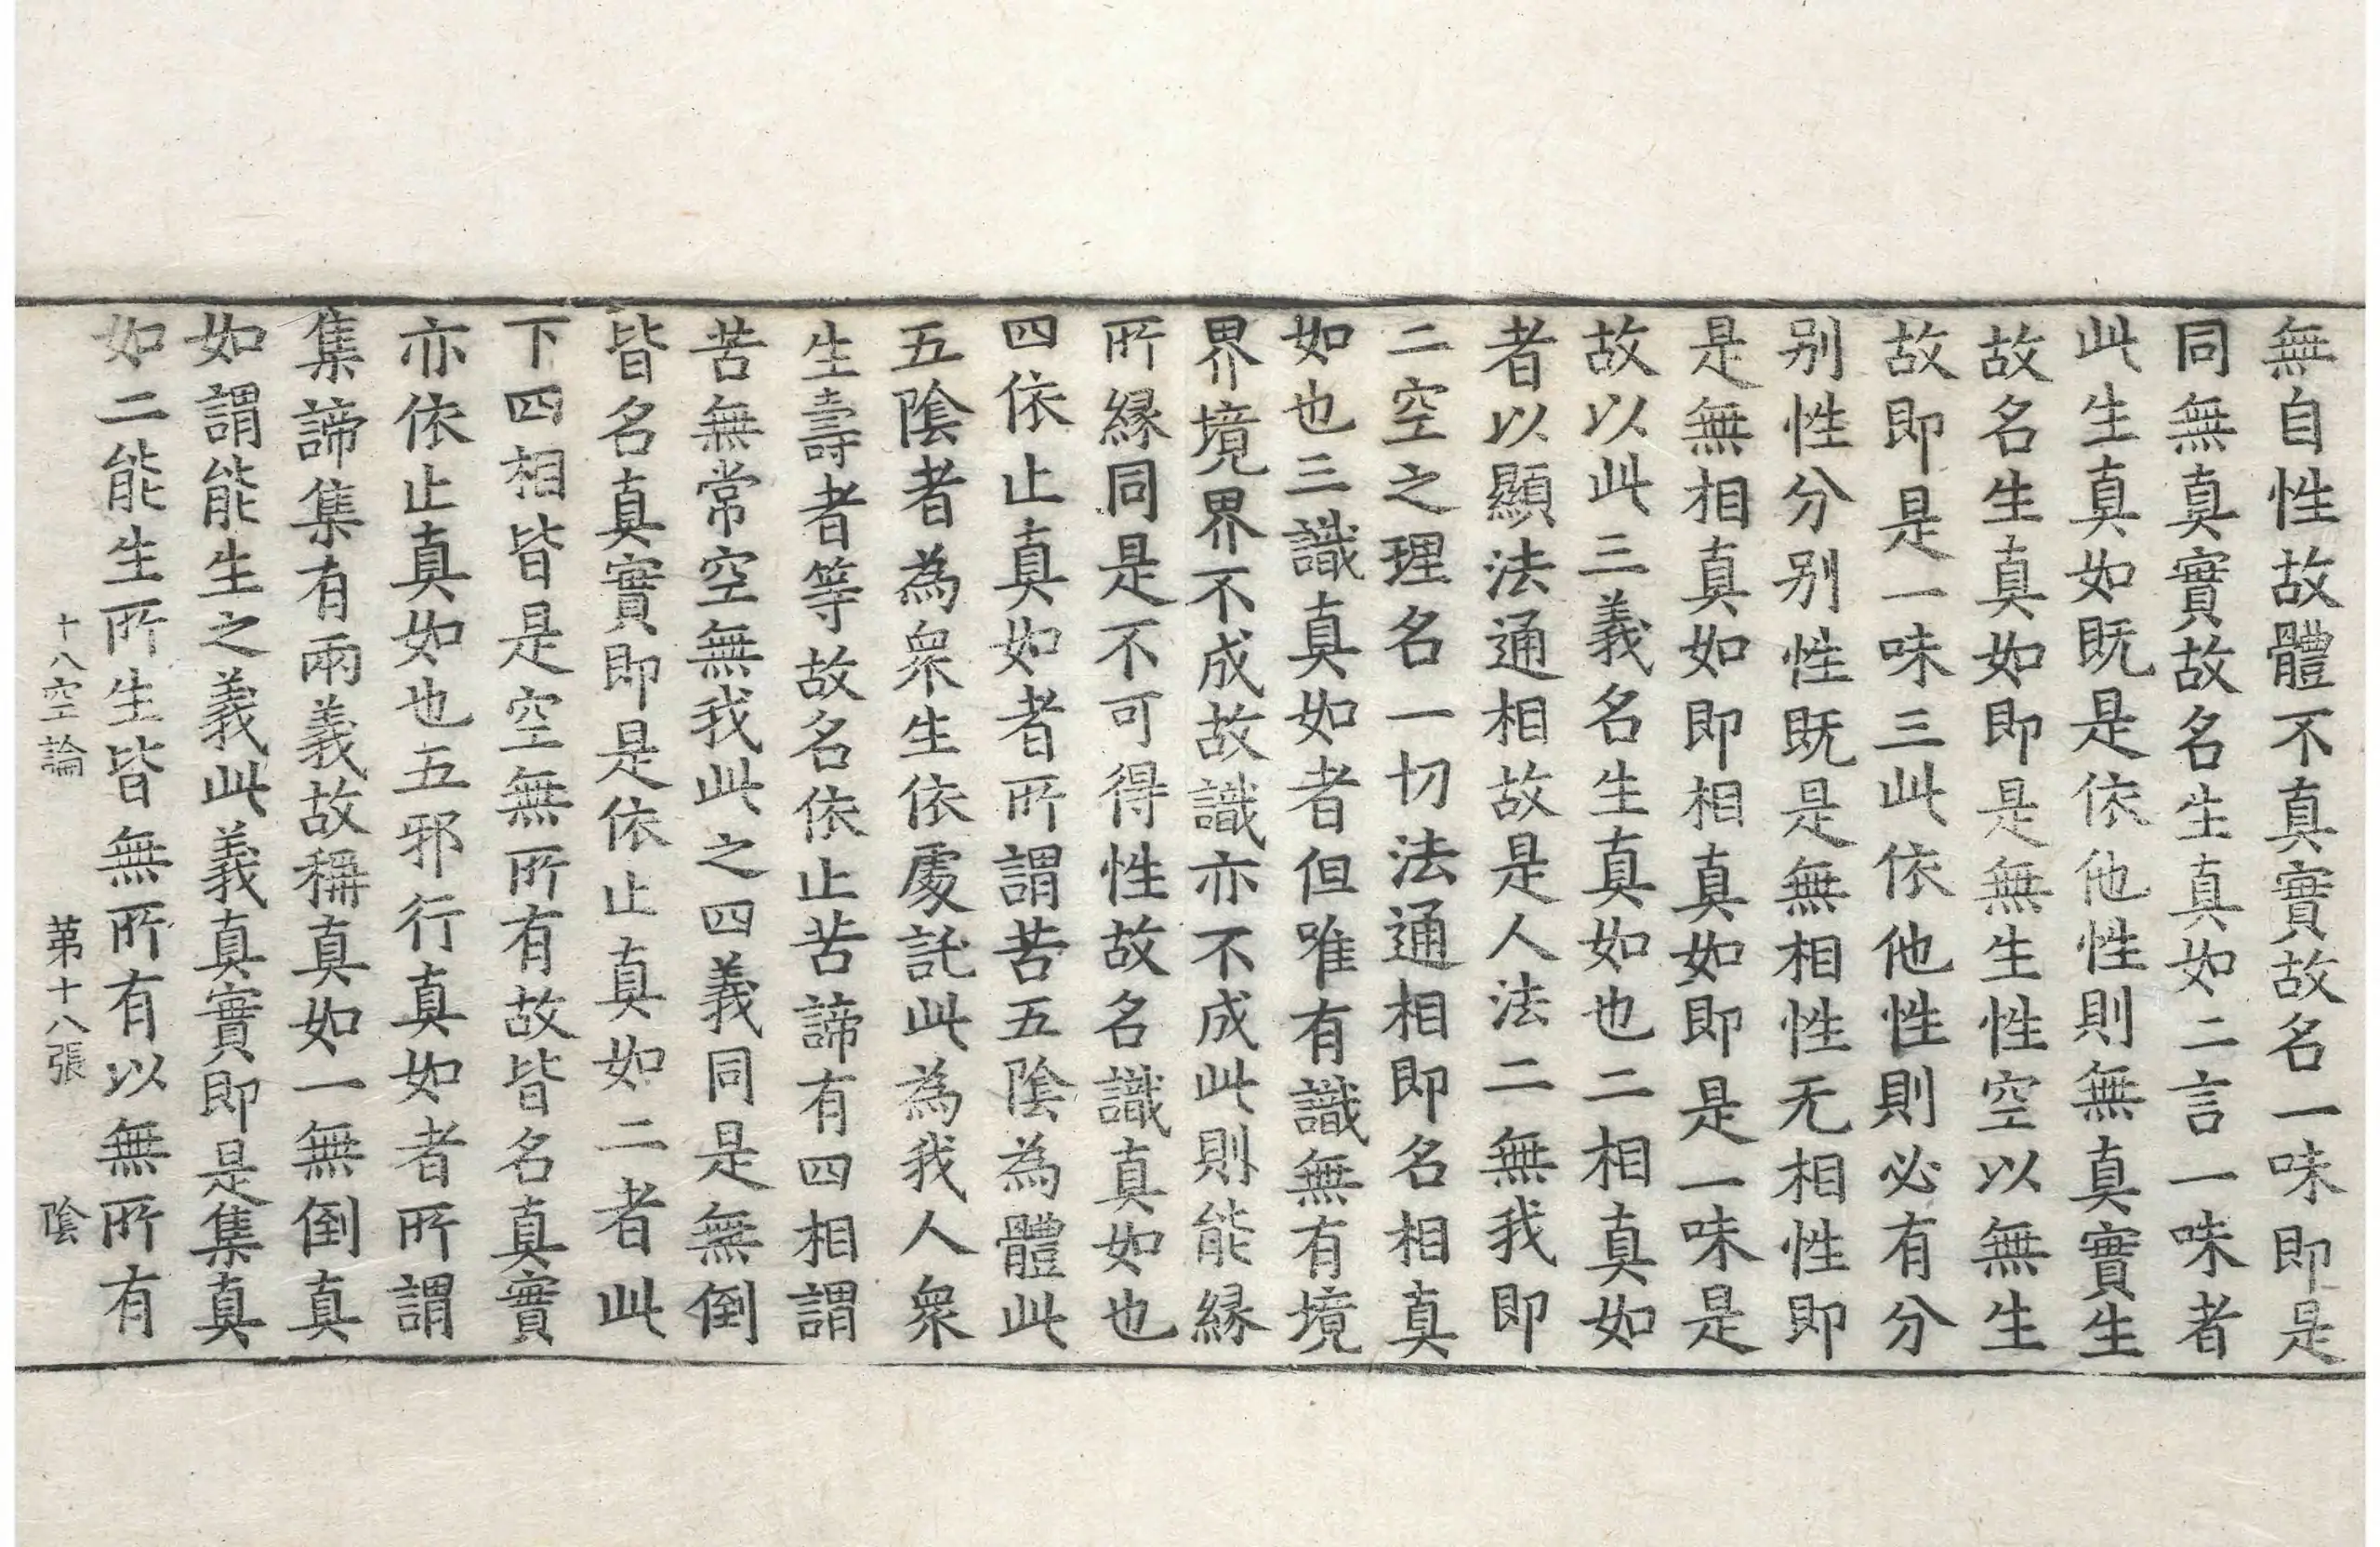 無自性故體不真實故名一味即是
同無真實故名生真如二言一味者
此生真如既是依他性則無真實生
故名生真如即是無生性空以無生
故即是一味三此依他性則必有分
别性分别性既是無相性无相性即
是無相真如即相真如即是一味是
故以此三義名生真如也二相真如
者以顯法通相故是人法二無我即
二空之理名一切法通相即名相真
如也三識真如者但唯有識無有境
界境界不成故識亦不成此則能縁
所縁同是不可得性故名識真如也
四依止真如者所謂苦五陰為體此
五陰者為衆生依處託此為我人衆
生壽者等故名依止苦諦有四相謂
苦無常空無我此之四義同是無倒
皆名真實即是依止真如二者此
下四相皆是空無所有故皆名真實
亦依止真如也五邪行真如者所謂
集諦集有兩義故稱真如一無倒真
如謂能生之義此義真實即是集真
如二能生所生皆無所有以無所有
十八空論 苐十八張 陰